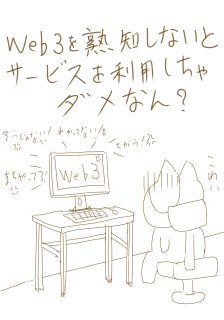 Web3を熟知しないと
サービスを利用しちゃ
ダメなん？
そうじゃない！
わかってない！
ちがう！
まちがってる！
Web3
こわい